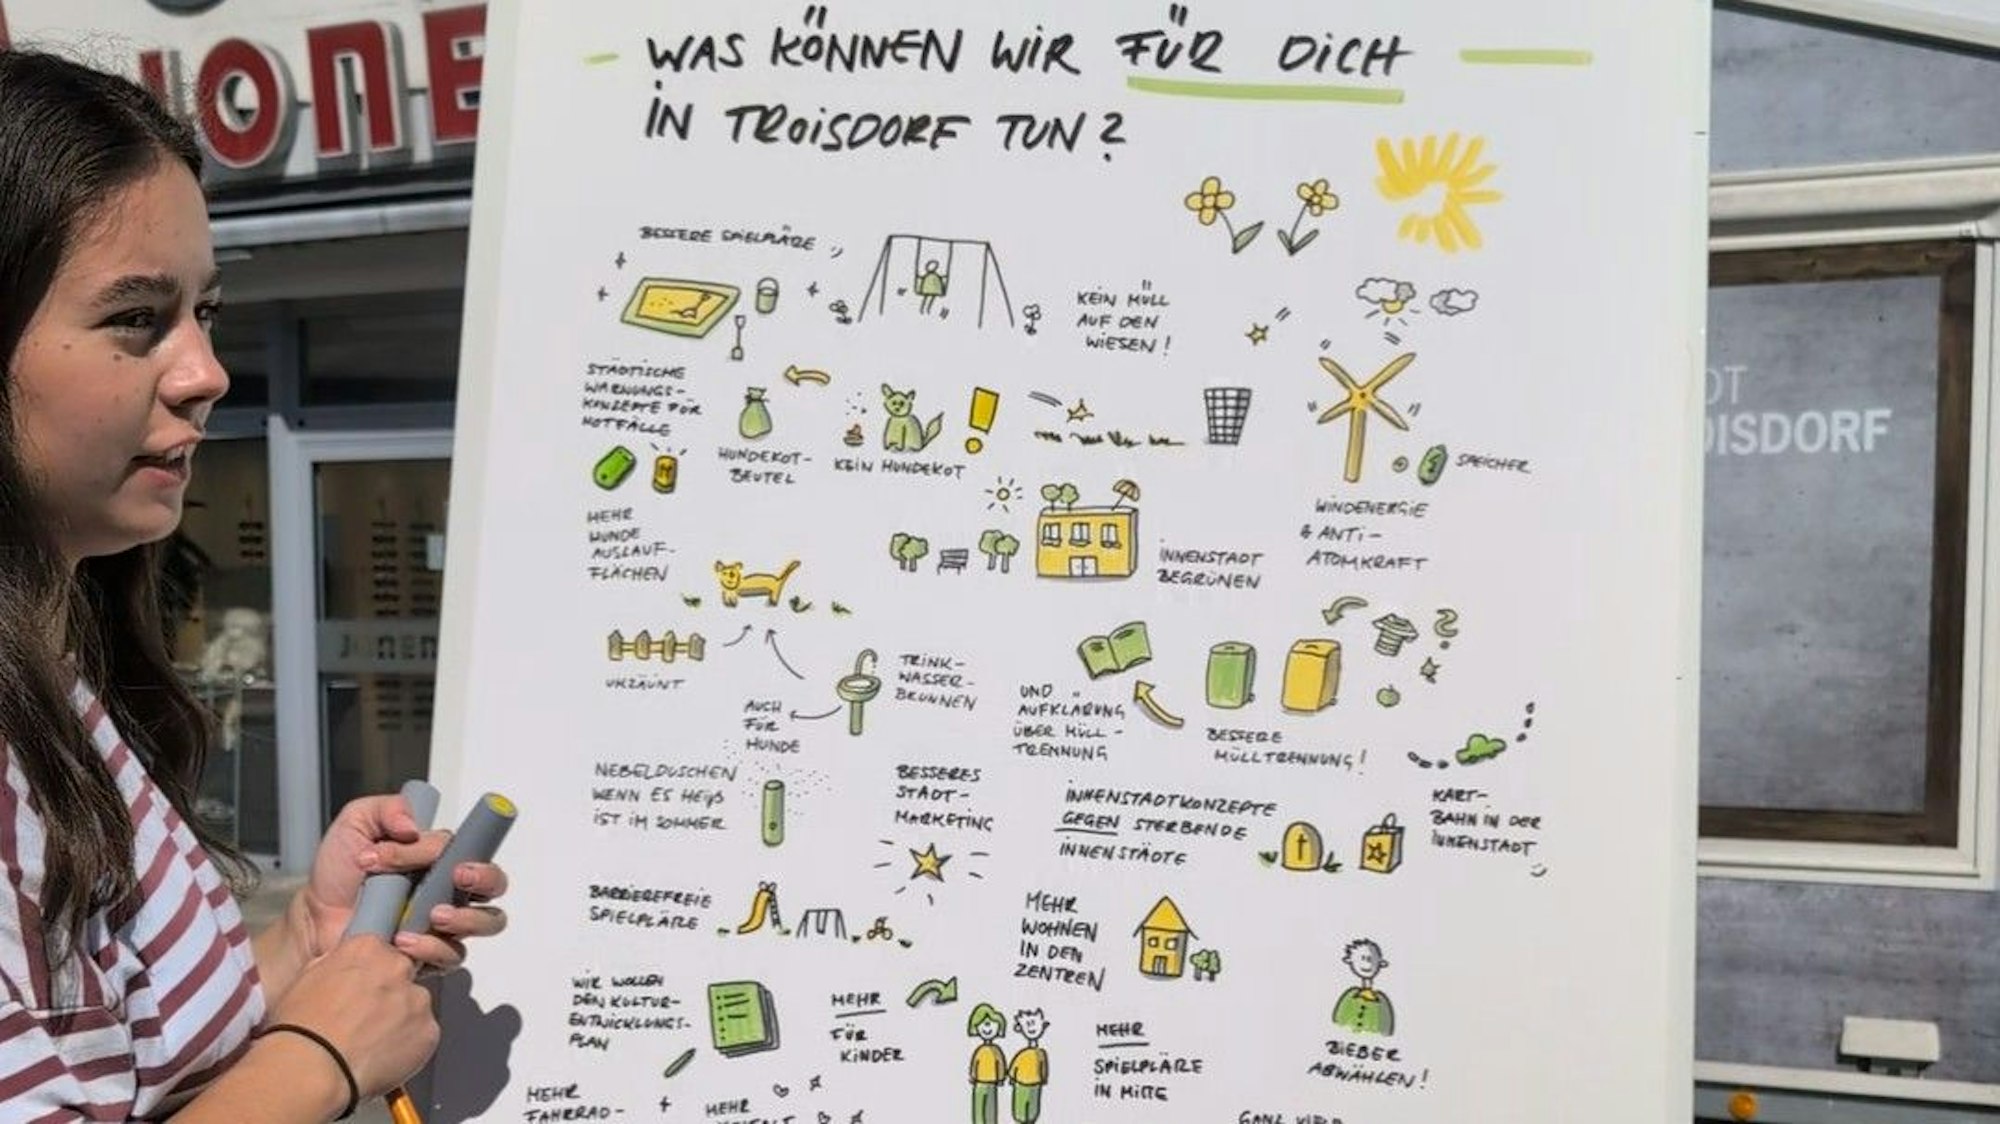 JONE
WAS KÖNNEN WIR FÜR DICH
IN TROISDORF TUN?
BESSERE SPIELPLÄZE
KEIN MÜLL
AUF DEN
WIESEN!
STÄDTISCHE
WARNUNGS-
KONZEPTE FÜR
NOTFÄLLE
HUNDEKOT-
BEUTEL
KEIN HUNDEKOT
SPEICHER
WINDENERGIE
& ANTI-
ATOMKRAFT
MEHR
HUNDE
AUSLAUF-
FLÄCHEN
INNENSTADT
BEGRÜNEN
UMZÄUNT
AUCH
FÜR
HUNDE
TRINK-
WASSER-
BRUNNEN
UND
AUFKLÄRUNG
ÜBER MÜLL-
TRENNUNG
BESSERE
MÜLLTRENNUNG!
NEBELDUSCHEN
WENN ES HEIß
IST IM SOMMER
BESSERES
STADT-
MARKETING
INNENSTADTKONZEPTE
GEGEN STERBENDE
INNENSTÄDTE
KART-
BAHN IN DER
INNENSTADT
BARRIEREFREIE
SPIELPLÄZE
MEHR
WOHNEN
IN DEN
ZENTREN
WIR WOLLEN
DEN KULTUR-
ENTWICKLUNGS-
PLAN
MEHR
FÜR
KINDER
MEHR
SPIELPLÄZE
IN MITTE
BIEBER
ABWÄHLEN!
MEHR
FAHRRAD-
MEHR
GANZ VIELE
JONEN
OT
OISDORF